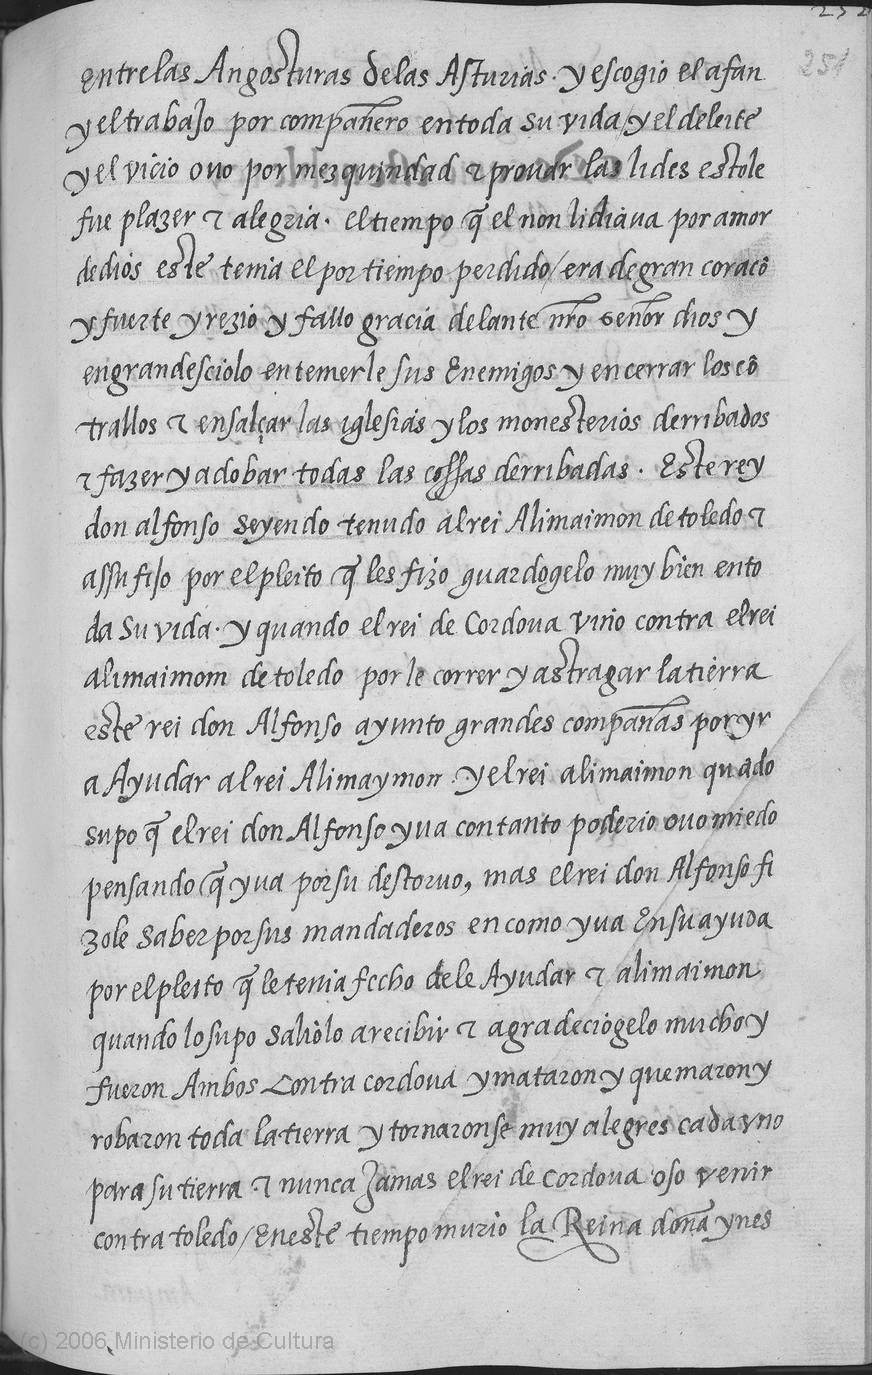 252
251
entre las Angosturas de las Asturias. y escogio el afan
y el trabajo por compañero en toda su vida / y el deleite
y el vicio ouo por mezquindad τ prouar las lides estole
fue plazer τ alegria. el tiempo q̃ el non lidiaua por amor
de dios este tenia el por tiempo perdido / era de gran coracõ
y fuerte y rezio y fallo gracia delante nr̃o señor dios y
engrandesciolo en temerle sus Enemigos y encerrar los cõ
trallos τ ensalçar las iglesias y los monesterios derribados
τ fazer y adobar todas las cossas derribadas. Este rey
don alfonso seyendo tenudo al rei Alimaimon de toledo τ
assu fijo por el pleito q̃ les fizo guardogelo muy bien en to
da su vida. y quando el rei de Cordoua vino contra el rei
alimaimom de toledo por le correr y astragar la tierra
este rei don Alfonso ayunto grandes compañas por yr
a Ayudar al rei Alimaymon. y el rei alimaimon quãdo
supo q̃ el rei don Alfonso yua con tanto poderio ouo miedo
pensando q̃ yua por su destoruo, mas el rei don Alfonso fi
zole saber por sus mandaderos en como yua En su ayuda
por el pleito q̃ le tenia fecho de le Ayudar τ alimaimon
quando lo supo saliolo a recibir τ agradeciogelo mucho y
fueron Ambos Contra cordoua y mataron y quemaron y
robaron toda la tierra y tornaronse muy alegres cada vno
para su tierra τ nunca Jamas el rei de cordoua oso venir
contra toledo / En este tiempo murio la Reina doña ynes
(c) 2006 Ministerio de Cultura